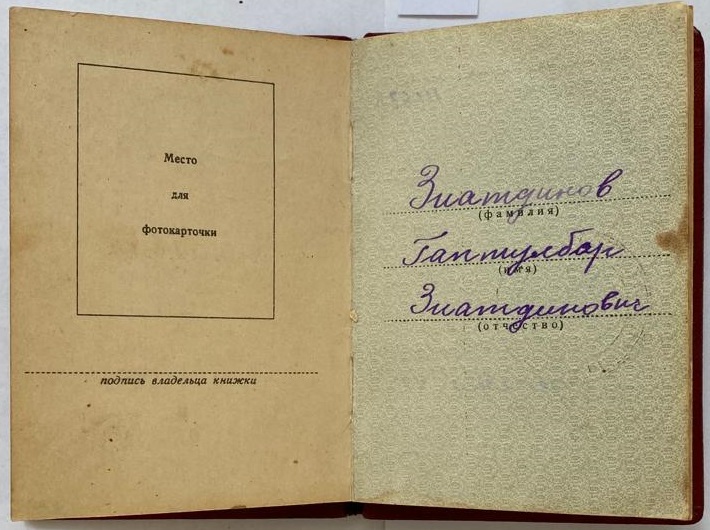 Место
для
фотокарточки
подпись владельца книжки
Зиатдинов
(фамилия)
Гаптулбар
(имя)
Зиатдинович
(отчество)